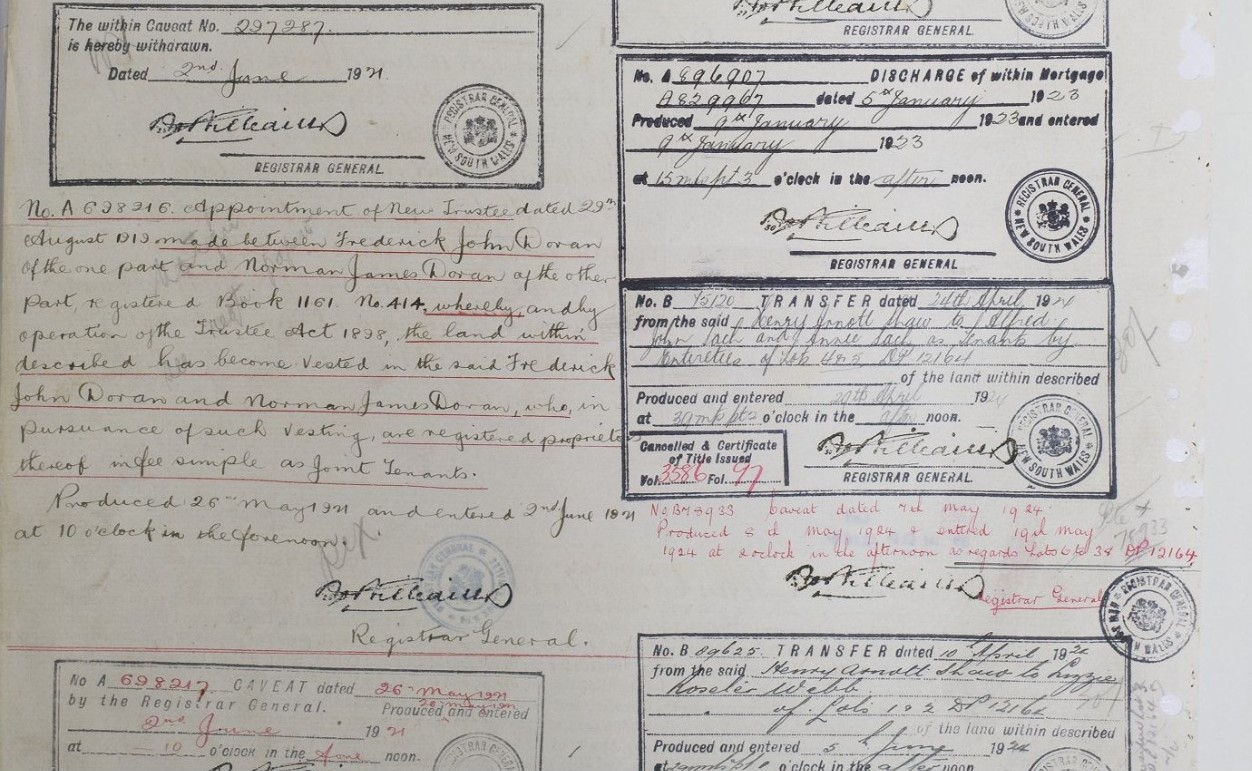 The within Caveat No. 297287.
is hereby withdrawn.
Dated 2nd June 1921.
REGISTRAR GENERAL.
REGISTRAR GENERAL
NEW SOUTH WALES
No. A 698216. Appointment of New Trustee dated 29th
August 1919 made between Frederick John Doran
of the one part and Norman James Doran of the other
part, registered Book 1161. No. 414, whereby, and by
operation of the Trustee Act 1898, the land within
described has become vested in the said Frederick
John Doran and Norman James Doran, who, in
pursuance of such vesting, are registered proprietors
thereof in fee simple as Joint Tenants.
Produced 26th May 1921 and entered 2nd June 1921
at 10 o'clock in the forenoon.
Registrar General.
No A 698217. CAVEAT dated 26th May 1921
by the Registrar General. Produced and entered
2nd June 1921
at 10 o'clock in the fore noon.
REGISTRAR GENERAL
No. A 896907 DISCHARGE of within Mortgage
A829967 dated 5th January 1923
Produced 9th January 1923 and entered
9th January 1923
at 15 mts pt 3 o'clock in the after noon.
REGISTRAR GENERAL
REGISTRAR GENERAL
NEW SOUTH WALES
No. B TRANSFER dated 24th April 192
from the said Henry Arnott Shaw to Alfred
John and Annie as Tenants by
Entireties of Lots 4 & 5 DP 12164
of the land within described
Produced and entered 29th April 192
at pt 2 o'clock in the after noon.
Cancelled & Certificate
of Title Issued
Vol. 3586 Fol. 97
REGISTRAR GENERAL
NEW SOUTH WALES
No B Caveat dated 7th May 1924
Produced 8th May 1924 & entered 19th May
1924 at o'clock in the afternoon as regards Lots 6 to 38 DP 12164
Registrar General
REGISTRAR GENERAL
No. B 09625. TRANSFER dated 10 April 1924
from the said Henry Arnott Shaw to Lizzie
Webb
of Lots 1 & 2 DP 12164
of the land within described
Produced and entered 5th June 1924
o'clock in the after noon